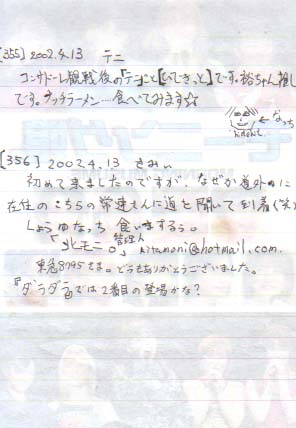 [355] 2002.4.13 テニ
コンサドーレ観戦後の「テニ」こと【ひでき、と】です。裕ちゃん推し
です。ナッチラーメン…食べてみます☆
なっち
[356] 2002.4.13 さみぃ
初めて来ましたのですが、なぜか道外に
在住のこちらの常連さんに道を聞いて到着(笑)
しょうゆなっち 食いまするぅ。
「北モニ。」管理人 kitamoni@hotmail.com.
東急8795さま。どうもありがとうございました。
『ダラダラ』では2番目の登場かな?